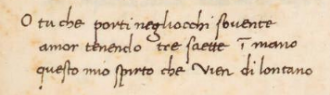 O tu che porti negliocchi sovente
amor tenendo tre saette ī mano
questo mio spirto che vien di lontano